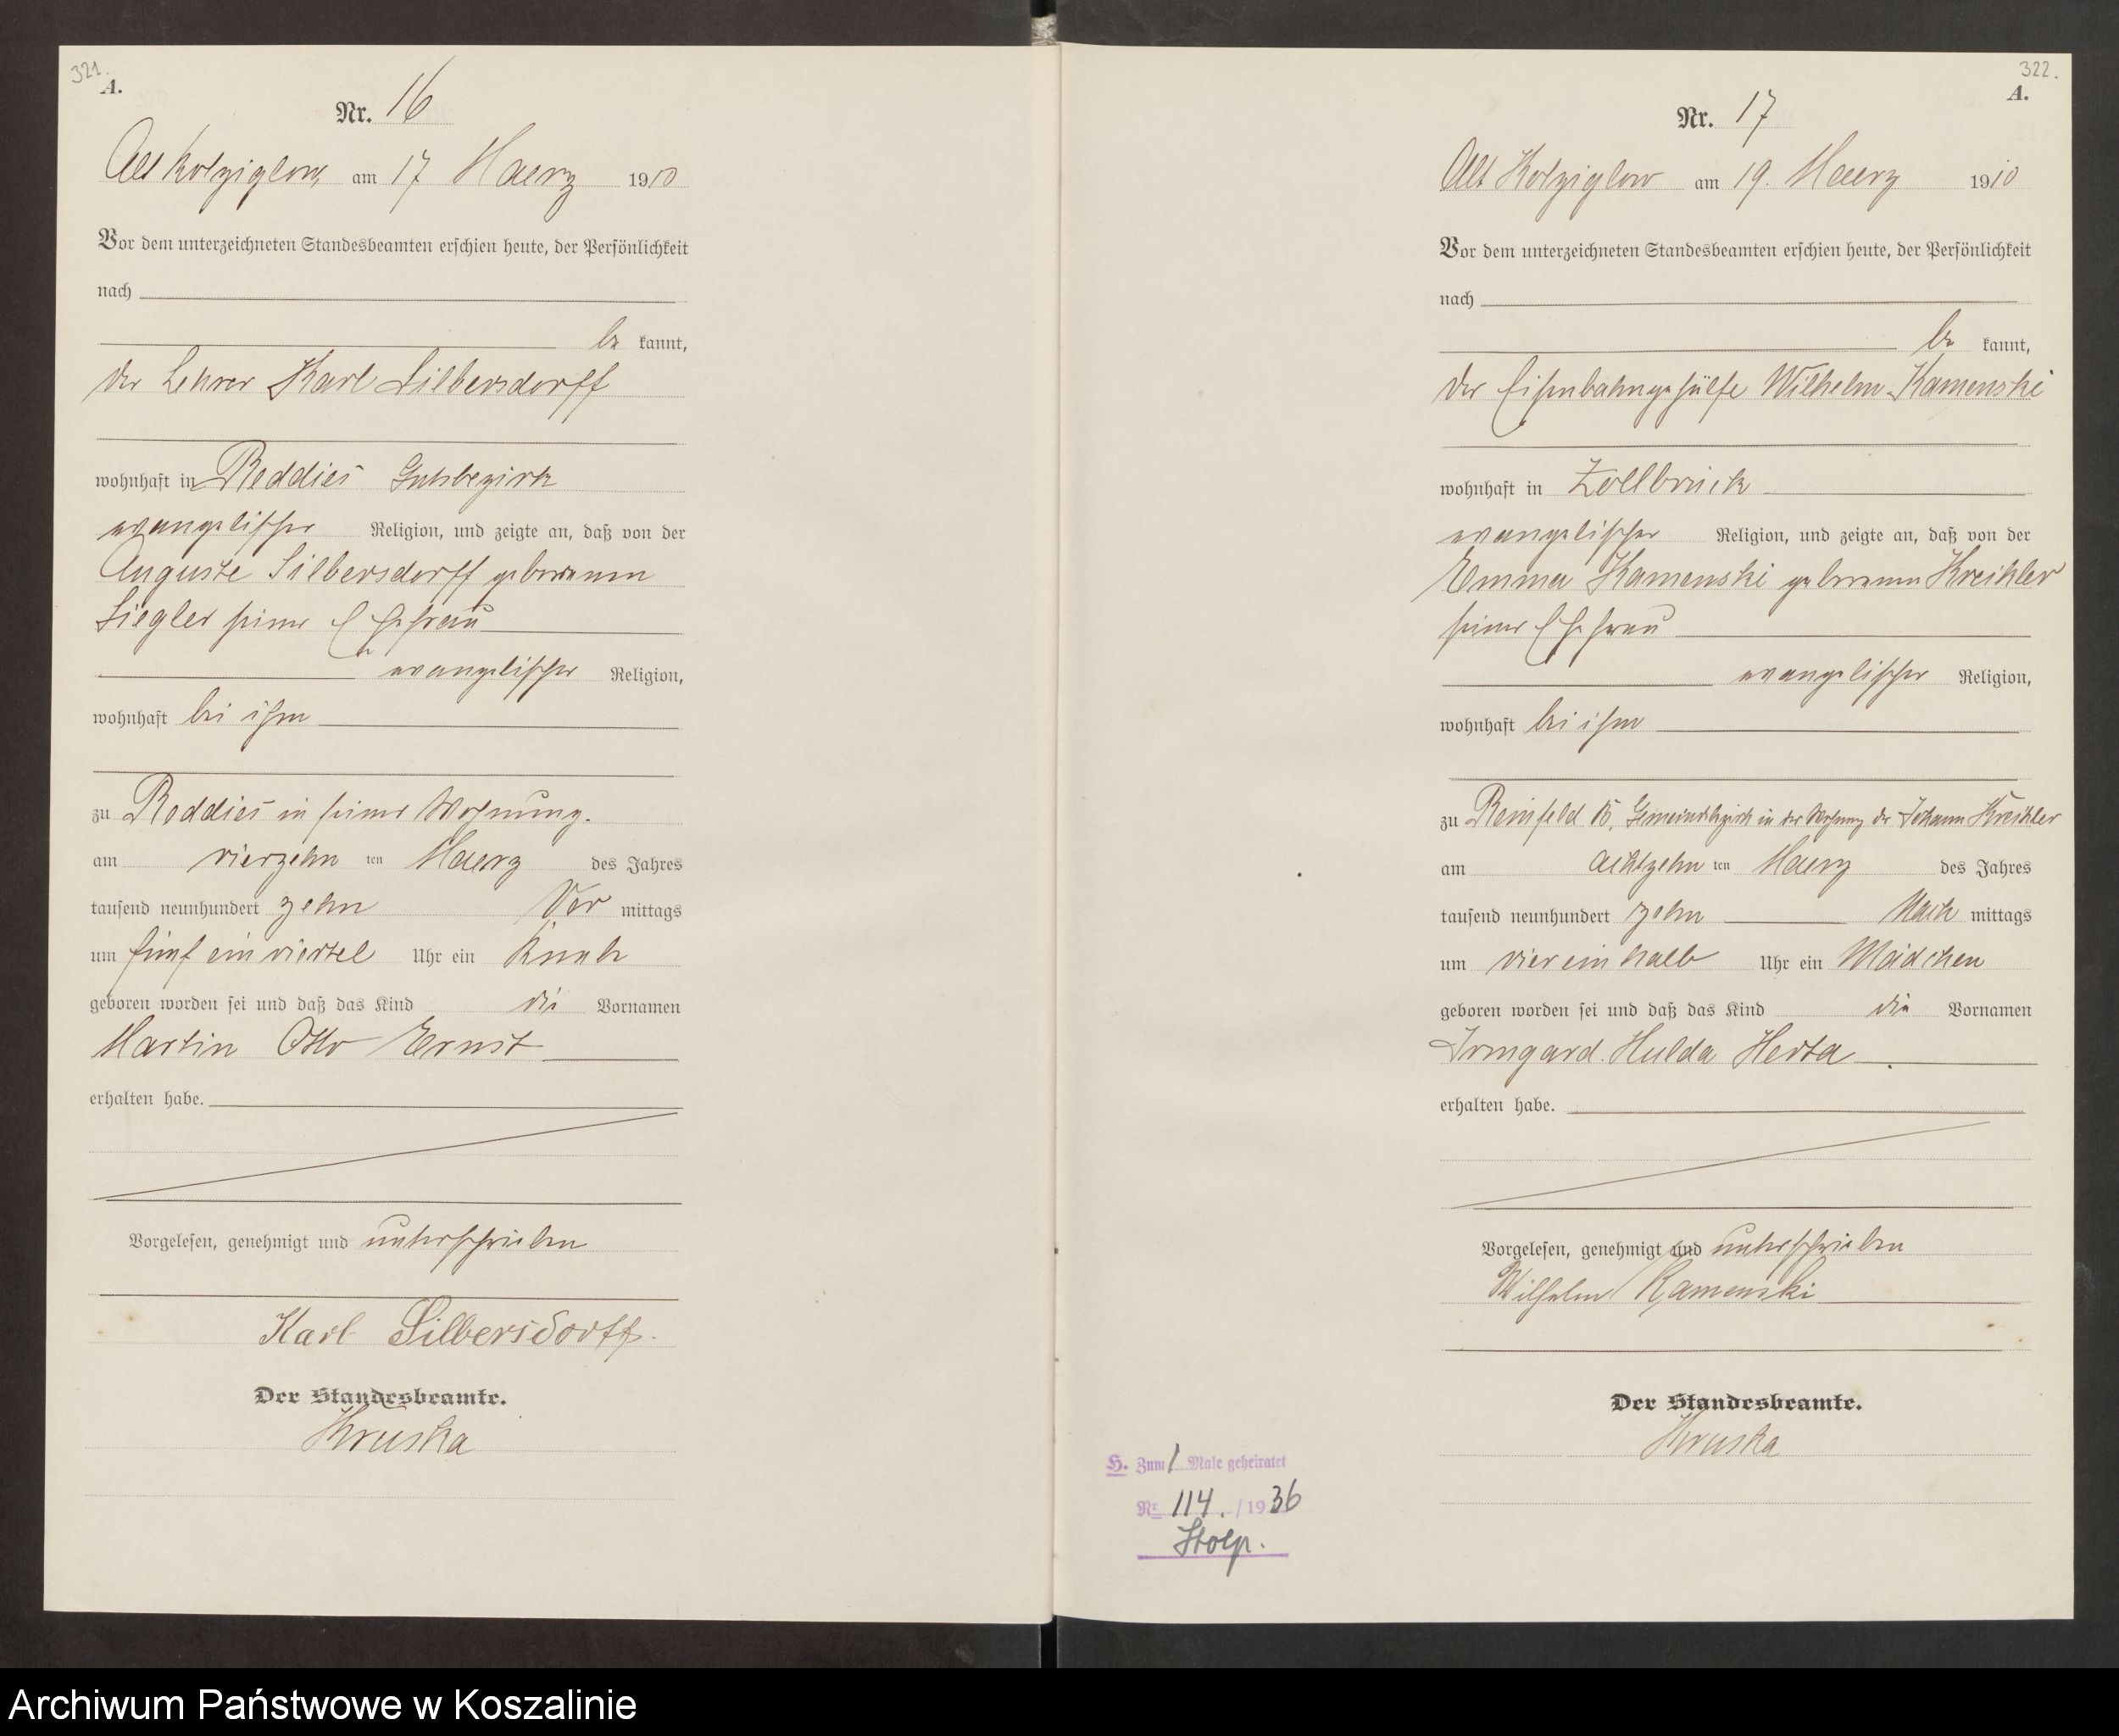 321.
A.
Nr. 16
Alt Kolziglow, am 17 Maerz 1910
Vor dem unterzeichneten Standesbeamten erschien heute, der Persönlichkeit
nach
be kannt,
der Lehrer Karl Silbersdorff
wohnhaft in Reddies Gutsbezirk
evangelischer Religion, und zeigte an, daß von der
Auguste Silbersdorff geborenen
Siegler seiner Ehefrau
evangelischer Religion,
wohnhaft bei ihm
zu Reddies in seiner Wohnung.
am vierzehn ten Maerz des Jahres
tausend neunhundert zehn Vor mittags
um fünf ein viertel Uhr ein Knabe
geboren worden sei und daß das Kind die Vornamen
Martin Otto Ernst
erhalten habe.
Vorgelesen, genehmigt und unterschrieben
Karl Silbersdorff.
Der Standesbeamte.
Kruska
322.
A.
Nr. 17
Alt Kolziglow am 19. Maerz 1910
Vor dem unterzeichneten Standesbeamten erschien heute, der Persönlichkeit
nach
be kannt,
der Eisenbahngehülfe Wilhelm Kamenski
wohnhaft in Zollbrück
evangelischer Religion, und zeigte an, daß von der
Emma Kamenski geborenen Kreikler
seiner Ehefrau
evangelischer Religion,
wohnhaft bei ihm
zu Reinfeld B, Gemeindebezirk in der Wohnung der Johann Kreikler
am achtzehn ten Maerz des Jahres
tausend neunhundert zehn Nach mittags
um vier ein halb Uhr ein Mädchen
geboren worden sei und daß das Kind die Vornamen
Irmgard Hulda Herta
erhalten habe.
Vorgelesen, genehmigt und unterschrieben
Wilhelm Kamenski
Der Standesbeamte.
Kruska
H. Zum 1 Male geheiratet
Nr 114. / 1936
Stolp.
Archiwum Państwowe w Koszalinie